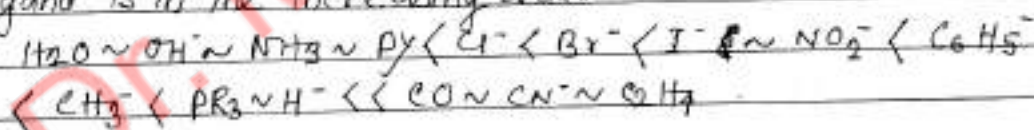 H2O ~ OH⁻ ~ NH3 ~ py < Cl⁻ < Br⁻ < I⁻ ~ NO2⁻ < C6H5⁻
< CH3⁻ < PR3 ~ H⁻ << CO ~ CN⁻ ~
Dr.